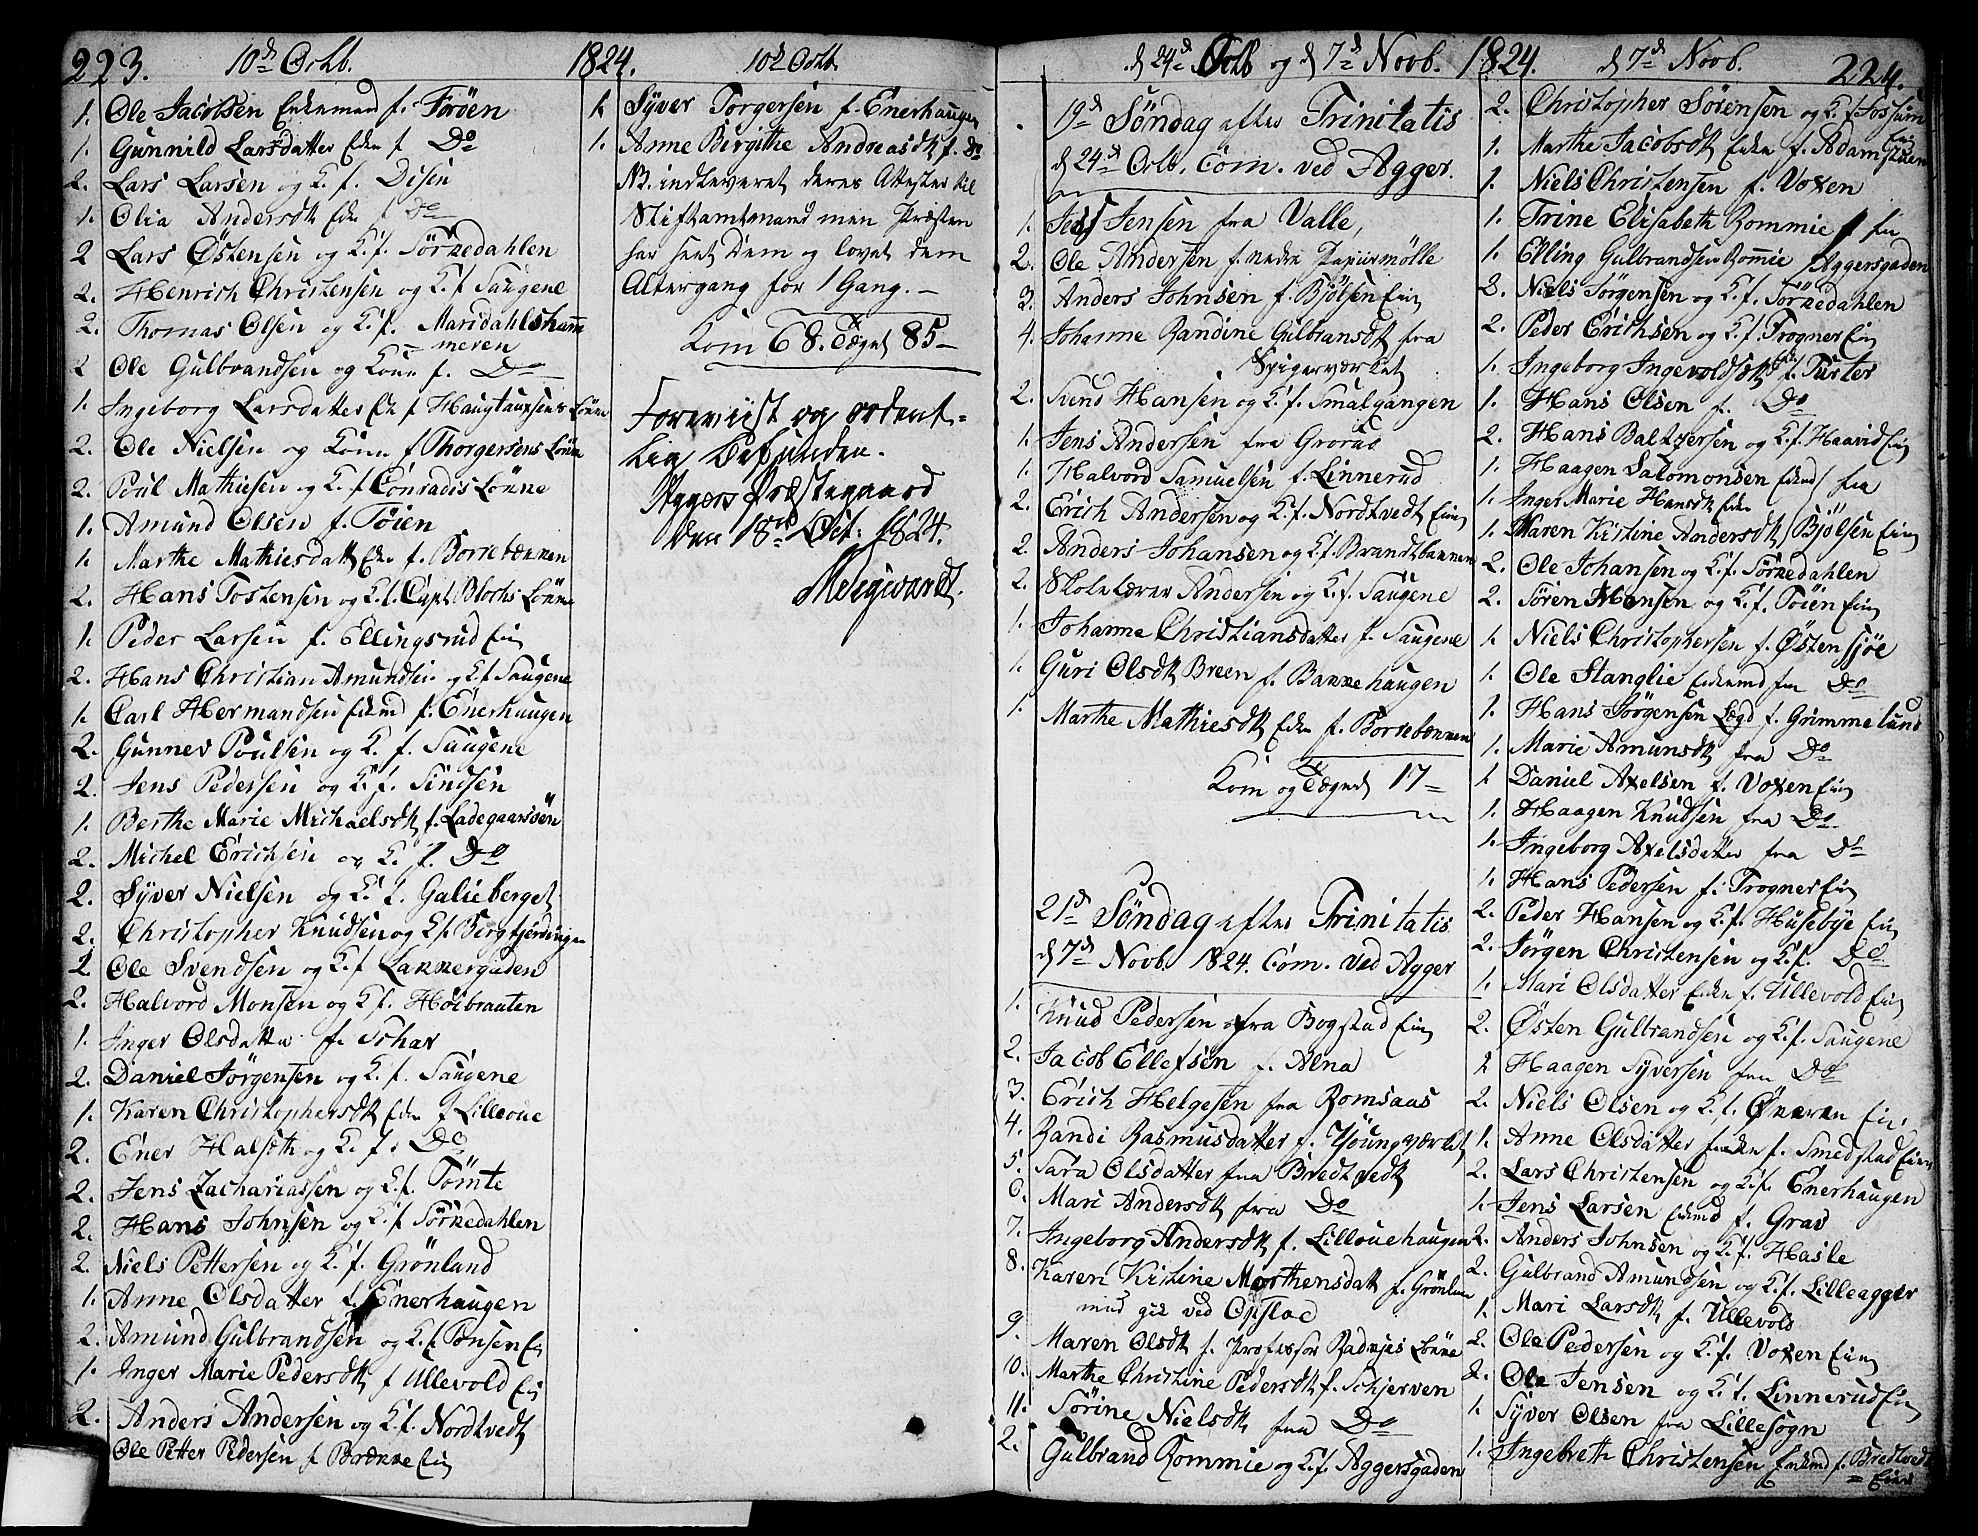 223. 10de Octb. 1824. 10de Octb.
1. Ole Jacobsen Enkemand f. Tøÿen
1. Gunnild Larsdatter Enke f Do
2. Lars Larsen og K. f. Disen
1. Olia Andersdtr Enke f Do
2 Lars Østensen og K. f. Sörkedahlen
2. Henrich Christensen og K f Saugene
2. Thomas Olsen og K. f. Maridahlshammeren
2 Ole Gulbrandsen og Kone f. Do
1. Ingeborg Larsdatter Enke f Løkke
2. Ole Nielsen og Kone f Thorgersens Lökke
2. Poul Mathiesen og K. f Conradis Lökke
1. Amund Olsen f. Töien
1. Marthe Mathiesdatt Enke f. Borrebækken
2. Hans Tostensen og K. f. Capt. Blochs Lökke
1. Peder Larsen f. Ellingsrud Eie
2. Hans Christian Amundsen og K f Saugene
1. Carl Hermandsen Enkemd f. Enerhaugen
2. Gunner Poulsen og K. f. Saugene
2. Jens Pedersen og K. f. Sindsen
1. Berthe Marie Michaelsdtr f. Ladegaarsöen
2. Michel Erichsen og K. f. Do
2. Syver Nielsen og K. f. Galieberget
2. Christopher Knudsen og K f. Bergfjerdingen
2 Ole Svendsen og K. f Lakkergaden
2. Halvord Monsen og K f. Höibraaten
1. Inger Olsdatter f. Schar
2. Daniel Jörgensen og K. f. Saugene
1. Karen Christophersdtr Enke f Lilloue
2. Ener Halseth og K. f. Do
2. Jens Zachariassen og K f. Tömte
2. Hans Johnsen og K. f Sörkedahlen
2. Niels Pettersen og K. f. Grönland
1. Anne Olsdatter f. Enerhaugen
2. Amund Gulbrandsen og K. f Tonsen Eie
1. Inger Marie Pedersdtr f Ullevold Eie
2. Anders Andersen og K. f. Nordtvedt
Ole Petter Pedersen f Brække Eie
1. Syver Torgersen f. Enerhaugen
1. Anne Birgithe Andreasdtr f. Do
NB. indleveret deres Attester til
Stiftamtmand men Præsten
har seet dem og lovet dem
Altergang for 1 Gang. —
Kom 68. Tegnet 85 —
Foreviist og ordent=
lig befunden.
Aggers Præstegaard
den 18de Oct: 1824.
d 24de Octb og d 7de Novb. 1824. d 7de Novb. 224.
19de Söndag efter Trinitatis
d 24de Octb. Com. ved Agger.
1. Jens Jensen fra Valle,
2. Ole Andersen f. nedre Papiirmölle
3. Anders Johnsen f. Bjölsen Eie
4. Johanne Randine Gulbransdtr fra
Spigerværket
2. Svend Hansen og K. f. Smalgangen
1. Jens Andersen fra Grorud
1. Halvord Samuelsen f. Linnerud
2. Erich Andersen og K. f. Nordtvedt Eie
2. Anders Johansen og K f. Brandtbakken
2. Skolelærer Andersen og K. f. Saugene
1. Johanne Christiansdatter f. Saugene
1. Guri Olsdtr Breen f. Bakkehaugen
1. Marthe Mathiesdtr Enke f. Borrebækken
Kom og Tegnet 17 —
21de Söndag efter Trinitatis
d 7de Novb. 1824. Com. ved Agger
1. Knud Pedersen fra Bogstad Eie
2. Jacob Ellefsen f. Alna
3. Erich Helgesen fra Romsaas
4. Randi Rasmusdatter f. Youngværket
5. Sara Olsdatter fra Bredtvedt
6. Mari Andersdtr fra Do
7. Ingeborg Andersdtr f. Lillouehaugen
8. Karen Kistine Morthensdatt f. Grönland
gik ved Opsloe
9. Maren Olsdtr f. Professor Lökke
10. Marthe Christine Pedersdtr f. Schjerven
11. Sörine Nielsdtr fra Do
2. Gulbrand Rommie og K. f. Aggersgaden
2. Christopher Sörensen og K f Fossum Eie
1. Marthe Jacobsdtr Enke f. Adamstuen
1. Niels Christensen f. Voxen
1. Trine Elisabeth Rommie fra
1. Elling Gulbrandsen Romie Aggersgaden
2. Niels Jörgensen og K. f. Sörkedahlen
2. Peder Erichsen og K. f. Frogner Eie
1. Ingeborg Ingevoldsdtr f. Turter
1. Hans Olsen f. Do
2. Hans Baltzersen og K. f. Haavid Eie
1. Haagen Salomonsen Enkemd fra
1. Inger Marie Hansdtr Enke
1. Maren Kistine Andersdtr Bjölsen Eie
2. Ole Johansen og K. f. Sörkedahlen
2. Sören Hansen og K. f. Töien Eie
1. Niels Christophersen f. Østensjöe
1. Ole Stanglie Enkemd fra Do
1. Hans Jörgensen Lægd f. Grimmelund
1. Marie Amunsdtr fra Do
1 Daniel Axelsen f. Voxen Eie
1. Haagen Knudsen fra Do
1. Ingeborg Axelsdatter fra Do
1. Hans Pedersen f. Frogner Eie
2. Peder Hansen og K. f. Husebye Eie
2. Jörgen Christensen og K. f. Do
1. Mari Olsdatter Enke f. Ullevold Eie
2. Østen Gulbrandsen og K. f. Saugene
2 Haagen Syversen fra Do
2. Niels Olsen og K. f. Økeren Eie
1. Anne Olsdatter Enke f. Smedstad Eie
2. Lars Christensen og K. f. Enerhaugen
1. Jens Larsen Enkemd f. Grav
2. Anders Johnsen og K. f. Hasle
2. Gulbrand Amundsen og K. f. Lilleagger
1. Mari Larsdtr f. Ullevold
2. Ole Pedersen og K. f. Voxen Eie
2. Ole Jensen og K. f. Linnerud Eie
1. Syver Olsen fra Lillesogn
1. Ingebreth Christensen Enkemd f. Bredtvedt
= Eie